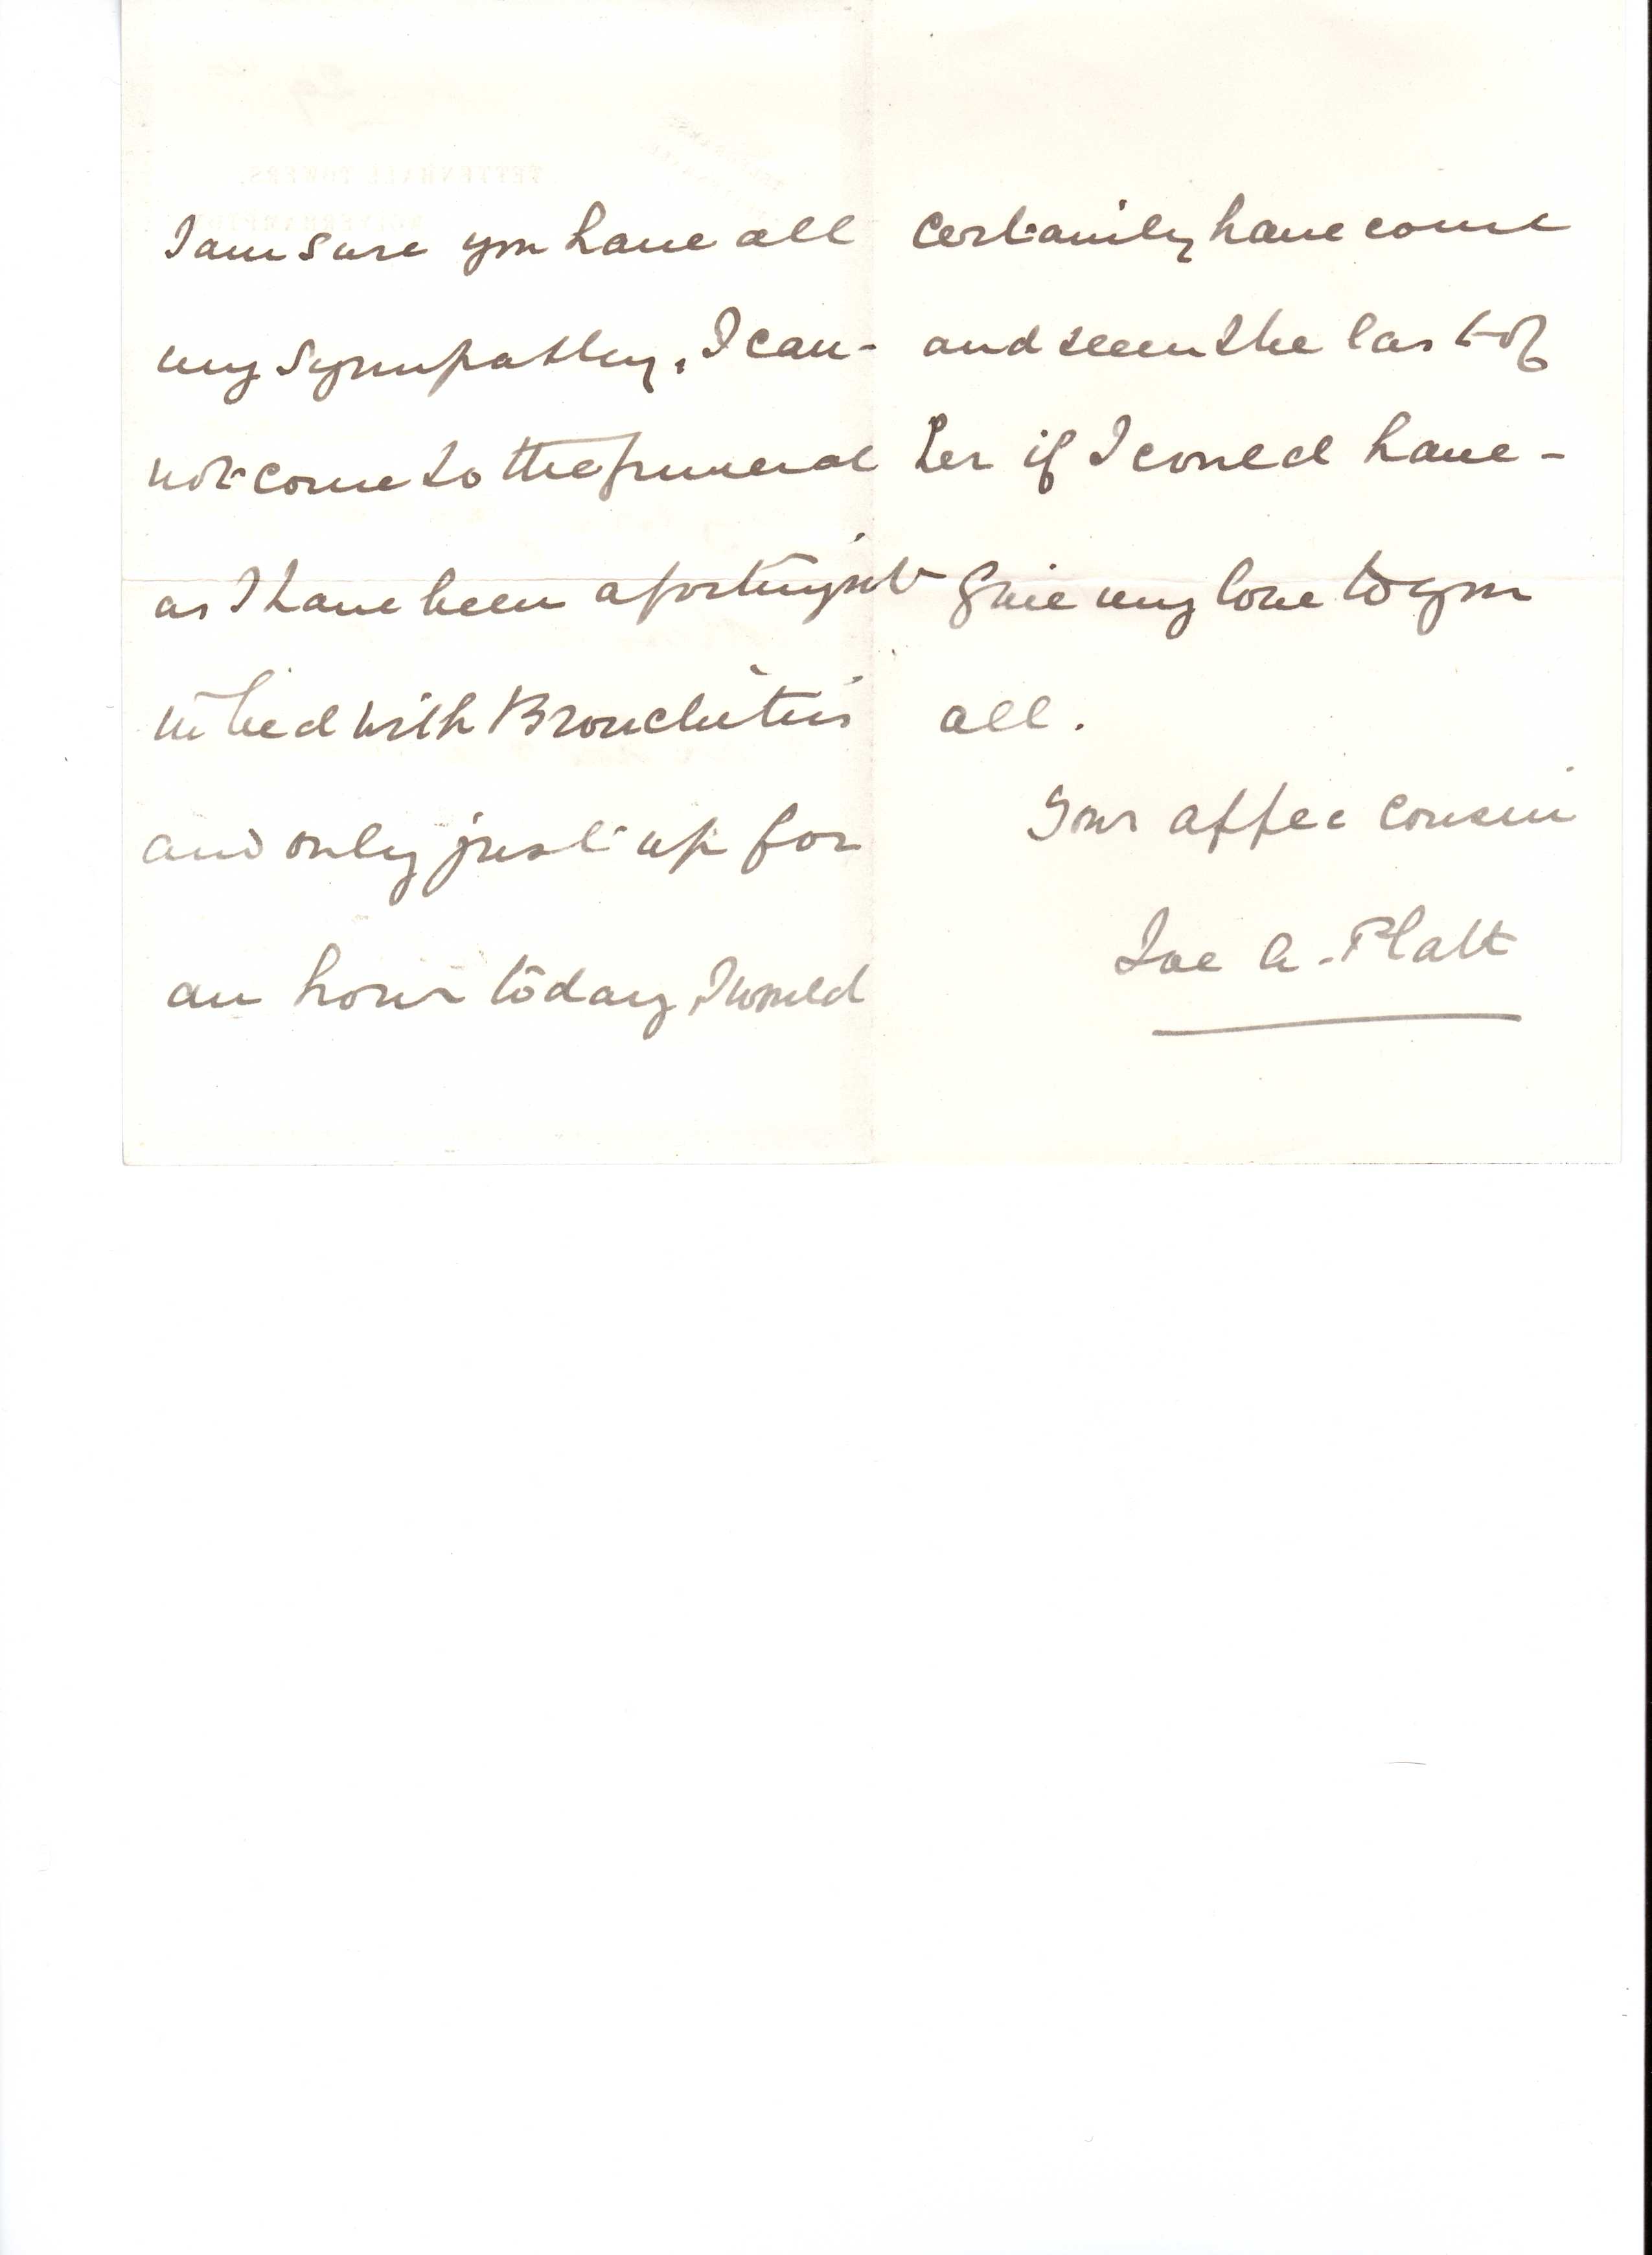 TETTENHALL TOWERS,
WOLVERHAMPTON
I am sure you have all
my sympathy. I can-
not come to the funeral
as I have been a fortnight
in bed with Bronchitis
and only just up for
an hour today I would
certainly have come
and seen the last of
her if I could have -
Give my love to you
all.
Your affec cousin
A. Platt